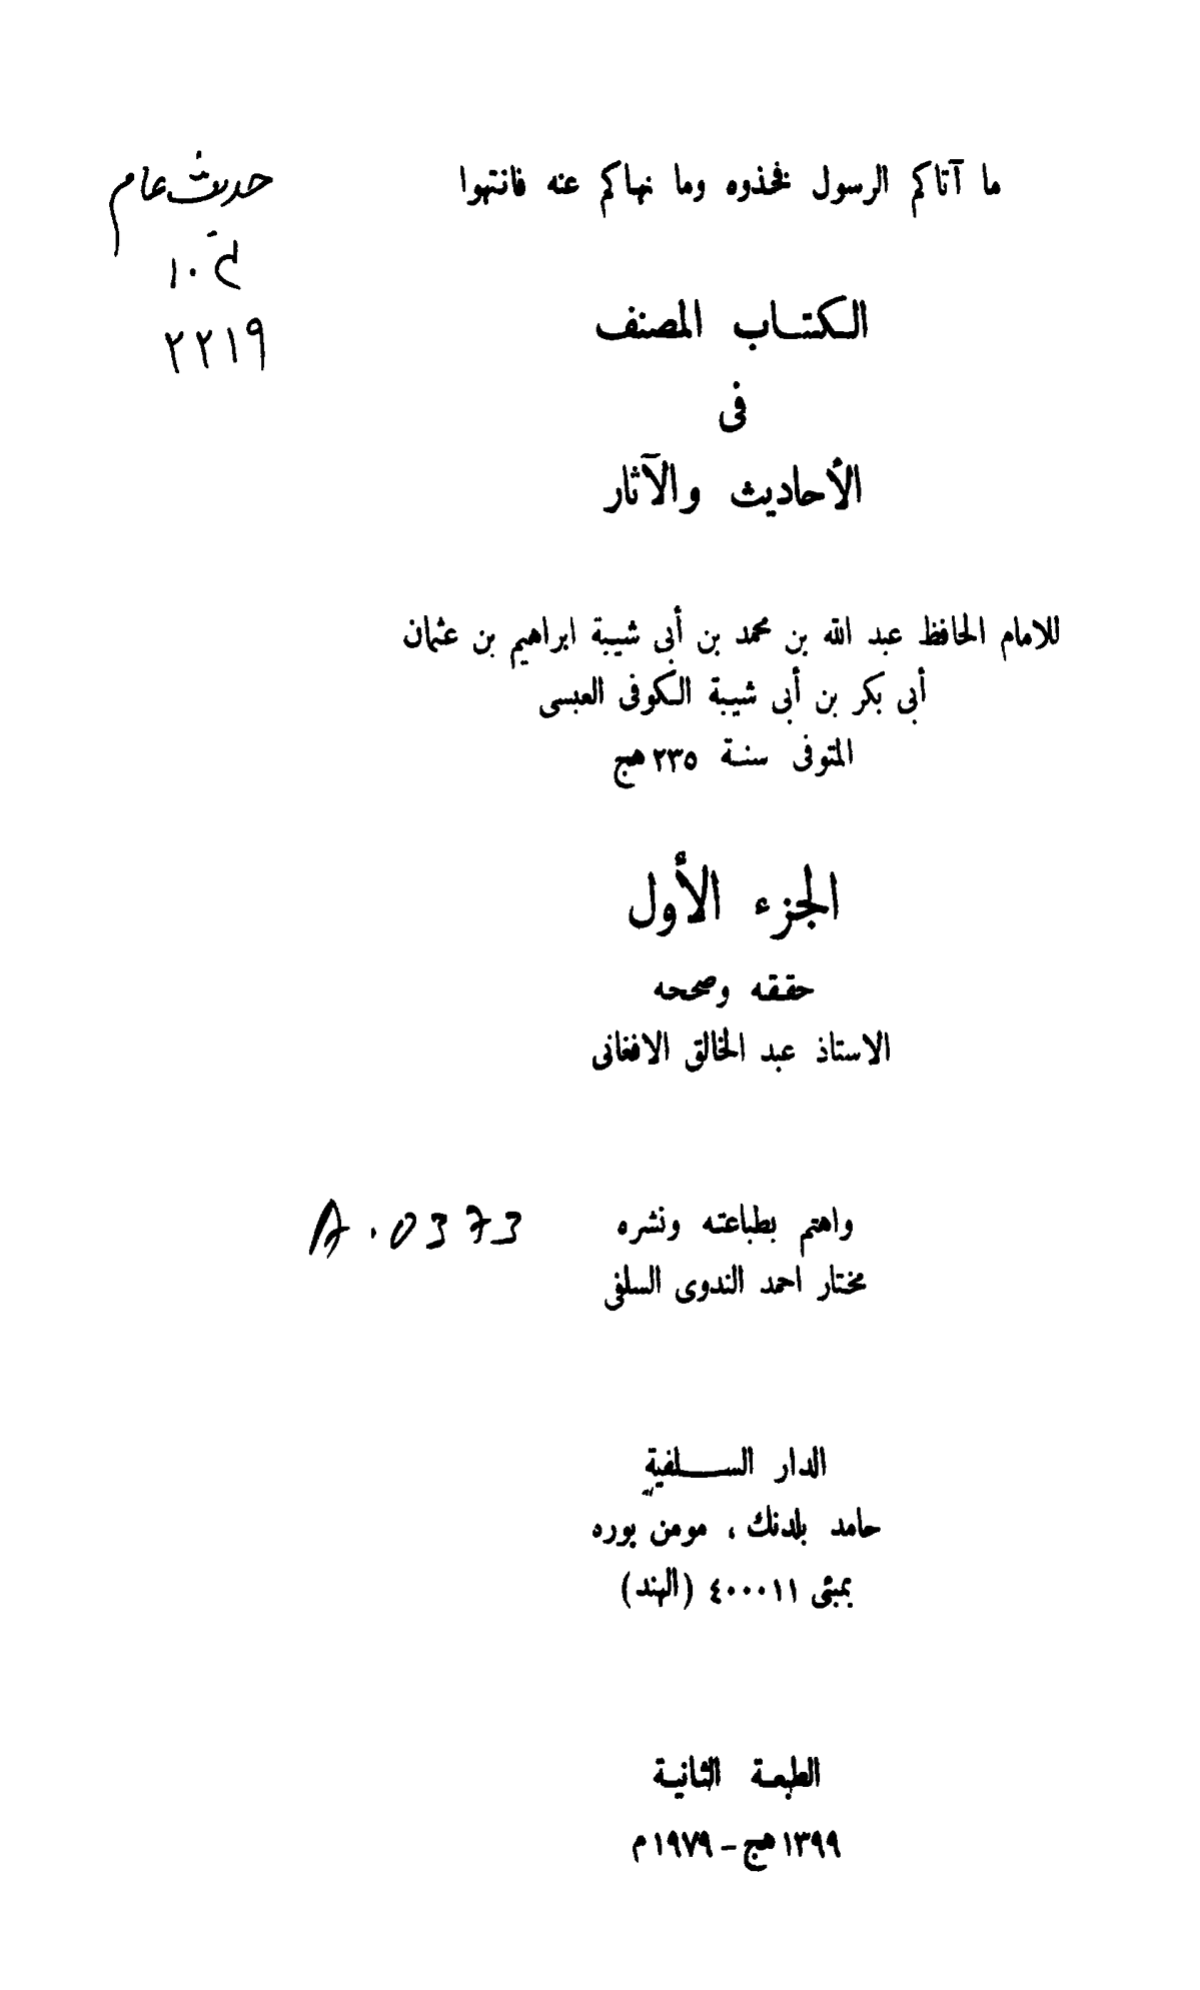 ما آتاكم الرسول فخذوه وما نهاكم عنه فانتهوا
حديث عام
١٠
٢٢١٩
الكتاب المصنف
فى
الأحاديث والآثار
للامام الحافظ عبد الله بن محمد بن أبى شيبة ابراهيم بن عثمان
أبى بكر بن أبى شيبة الكوفى العبسى
المتوفى سنة ٢٣٥ هج
الجزء الأول
حققه وصححه
الاستاذ عبد الخالق الافغانى
واهتم بطباعته ونشره
A.0373
مختار احمد الندوى السلفى
الدار السلفية
حامد بلدنك ، مومن بوره
بمبئى ٤٠٠٠١١ (الهند)
الطبعة الثانية
١٣٩٩ هج - ١٩٧٩ م